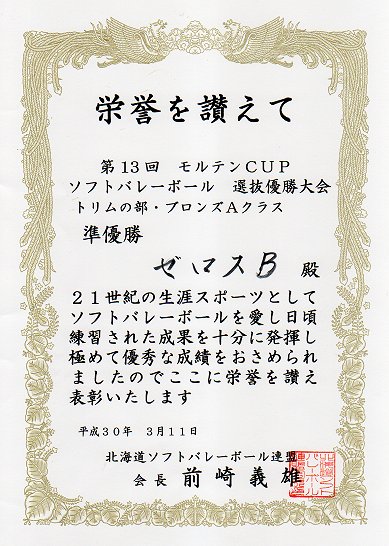 栄誉を讃えて
第13回 モルテンCUP
ソフトバレーボール 選抜優勝大会
トリムの部・ブロンズAクラス
準優勝
ゼロスB 殿
21世紀の生涯スポーツとして
ソフトバレーボールを愛し日頃
練習された成果を十分に発揮し
極めて優秀な成績をおさめられ
ましたのでここに栄誉を讃え
表彰いたします
平成30年 3月11日
北海道ソフトバレーボール連盟
会長 前崎義雄